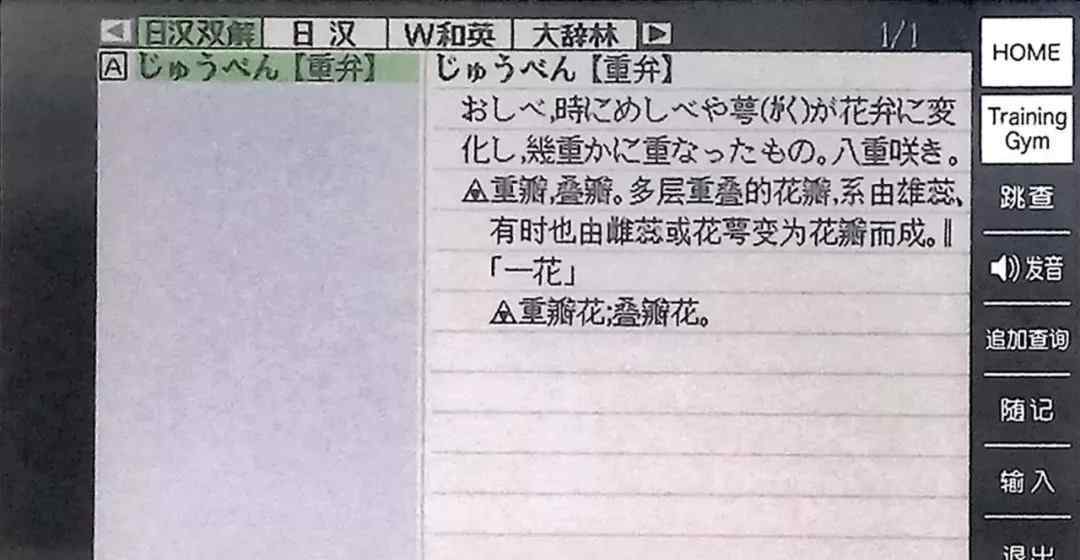 ◀ 日汉双解 日 汉 W和英 大辞林 ▶ 1/1
A じゅうべん【重弁】
じゅうべん【重弁】
おしべ,時にめしべや萼(がく)が花弁に変
化し,幾重かに重なったもの。八重咲き。
重瓣,叠瓣。多层重叠的花瓣,系由雄蕊、
有时也由雌蕊或花萼变为花瓣而成。‖
「一花」
重瓣花;叠瓣花。
HOME
Training
Gym
跳查
发音
追加查询
随记
输入
退出